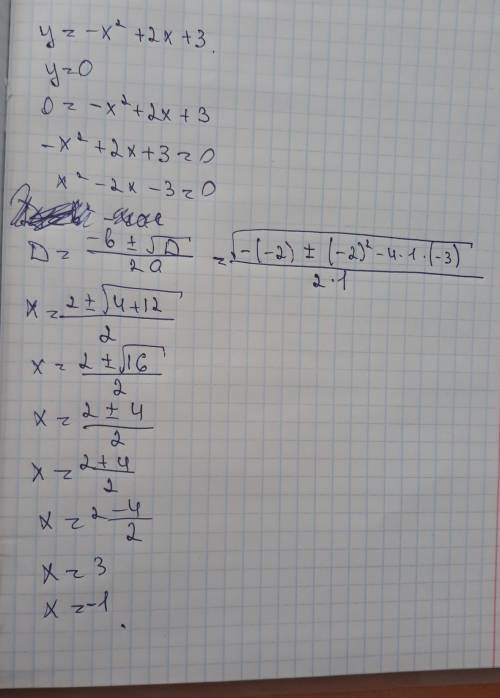 y = -x² + 2x + 3.
y = 0
0 = -x² + 2x + 3
-x² + 2x + 3 = 0
x² - 2x - 3 = 0
D = (-b ± √D)/(2a) = √(-(-2) ± (-2)² - 4·1·(-3))/(2·1)
x = (2 ± √(4+12))/2
x = (2 ± √16)/2
x = (2 ± 4)/2
x = (2 + 4)/2
x = 2 (-4)/2
x = 3
x = -1.